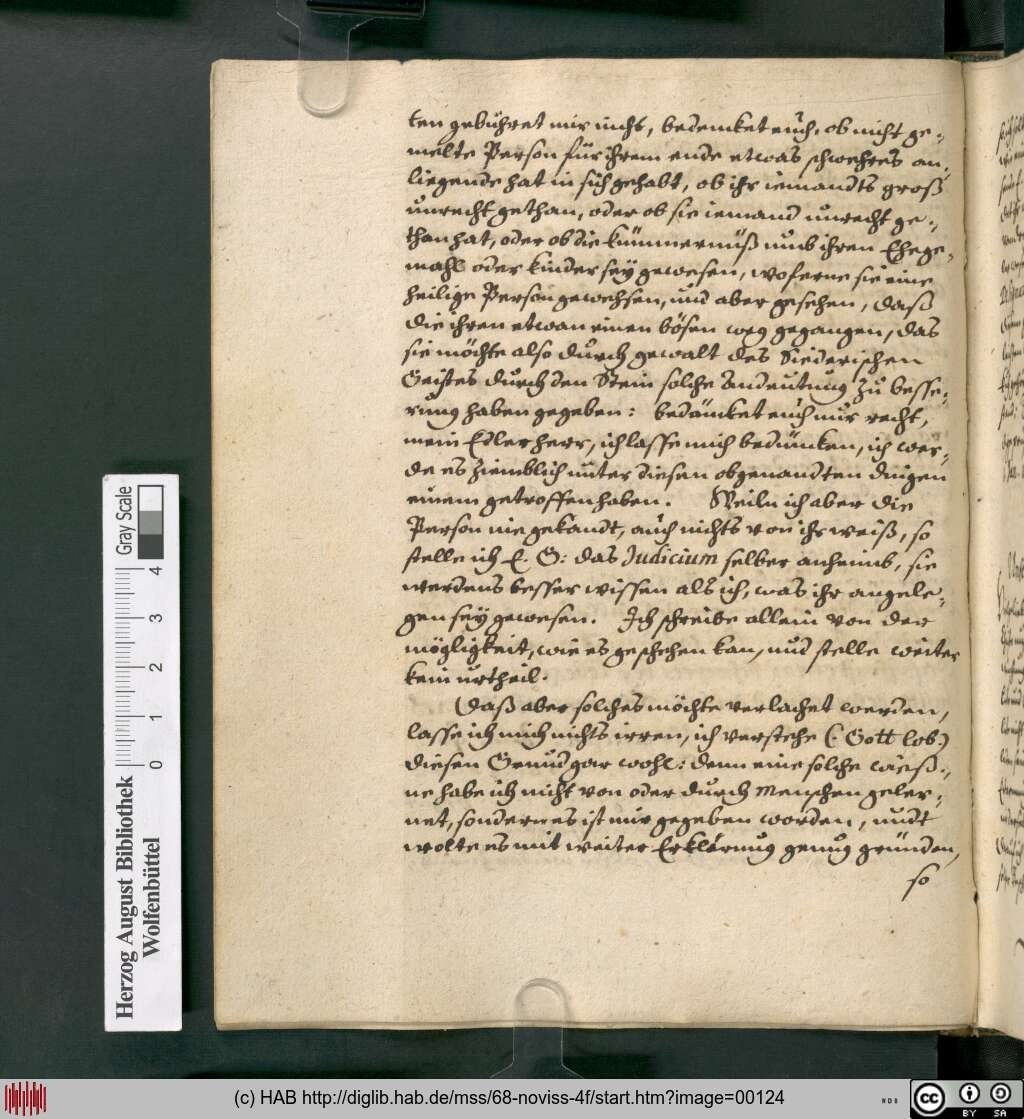 ten gebühret mir nicht, bedencket euch, ob nicht ge-
melte Person für ihrem ende etwas schwehres an-
liegende hat in sich gehabt, ob ihr iemandts groß
unrecht gethan, oder ob sie iemand unrecht ge-
than hat, oder ob die kümmernüß umb ihren Ehege-
mahl oder kinder sey gewesen, woferne sie eine
heilige Person gewehsen, und aber gesehen, daß
die ihren etwan einen bösen weg gegangen, das
sie möchte also durch gewalt des Siederischen
Geistes durch den Stein solche andeutung zu besse-
rung haben gegeben: bedäncket euch nur recht,
mein Edler herr, ich lasse mich bedüncken, ich wer-
de es ziemblich unter diesen obgenandten dingen
einem getroffen haben. Weiln ich aber die
Person nie gekandt, auch nichts von ihr weiß, so
stelle ich E. G: das Judicium selber anheimb, sie
werdens besser wissen als ich, was ihr angele-
gen sey gewesen. Ich schreibe allein von der
mögligkeit, wie es geschehen kan, und stelle weiter
kein urtheil.
Daß aber solches möchte verlachet werden,
lasse ich mich nichts irren, ich verstehe (: Gott lob:)
diesen Grund gar wohl: denn eine solche wieß-
ne habe ich nicht von oder durch Menschen geler-
net, sondern es ist mir gegeben worden, undt
wolte es mit weiter Erklärung genug gründen,
so
Gray Scale
4
3
2
1
0
Herzog August Bibliothek
Wolfenbüttel
(c) HAB http://diglib.hab.de/mss/68-noviss-4f/start.htm?image=00124
cc
BY SA